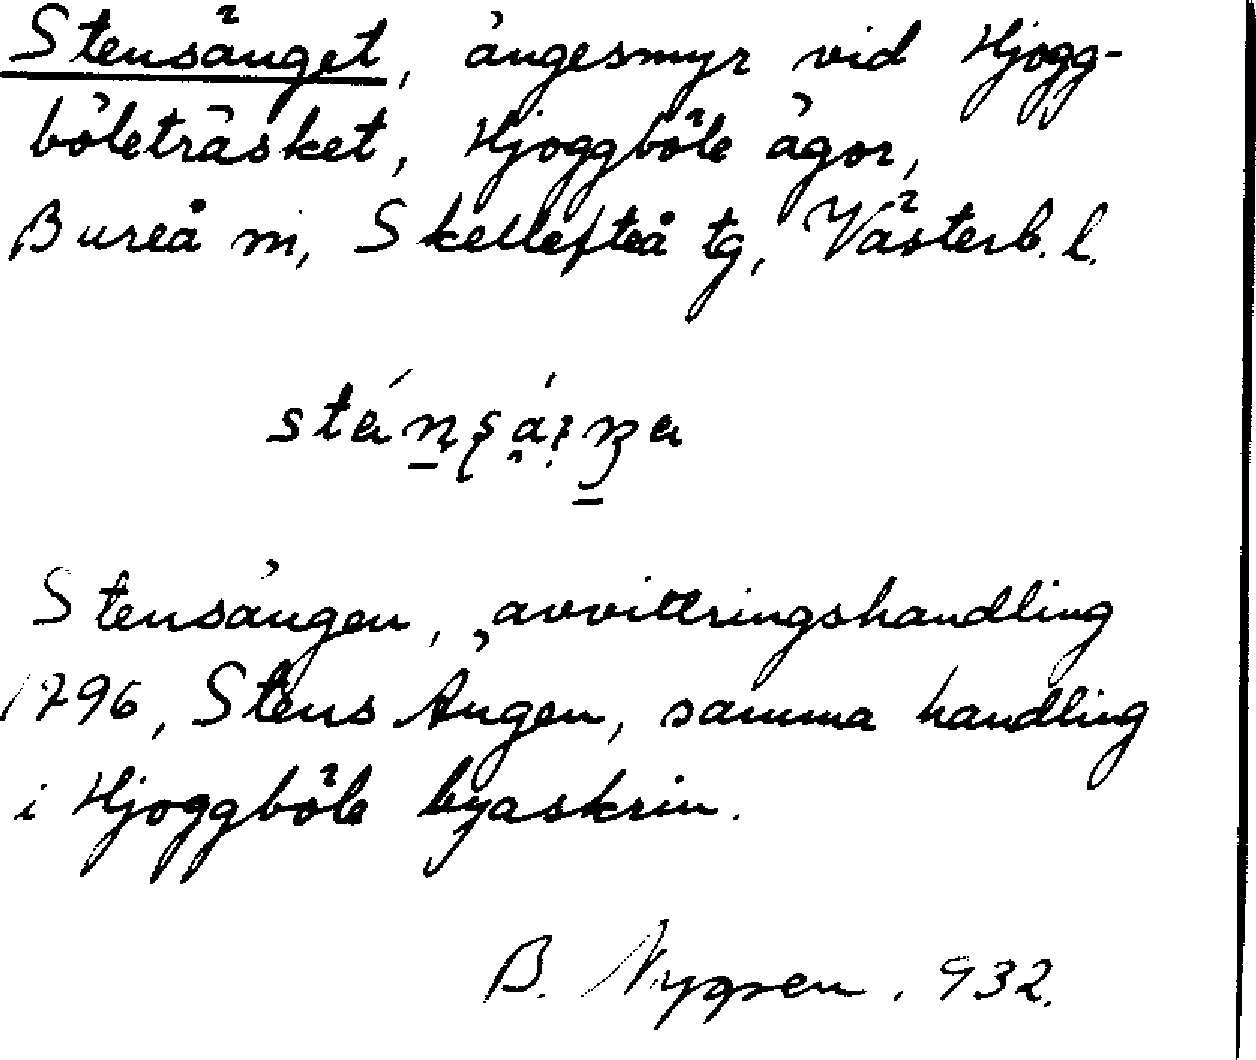 Stensänget, ängesmyr vid Hjogg-
böleträsket, Hjoggböle ägor,
Bureå sn, Skellefteå tg, Västerb. l.
Stensängen, avvittringshandling
1796, Stens Ängen, samma handling
i Hjoggböle byaskrin.
B. Nygren. 932.